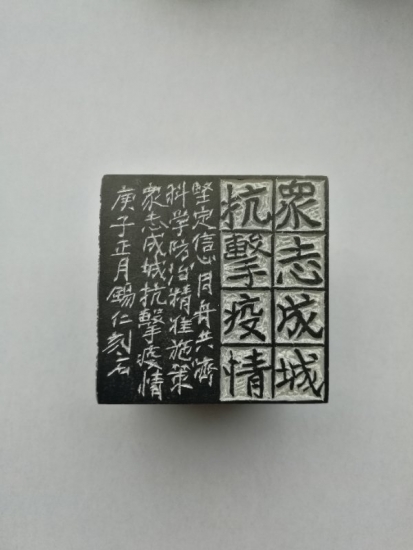 眾志成城
抗擊疫情
堅定信心同舟共濟
科学防治精准施策
眾志成城抗擊疫情
庚子正月錫仁刻石